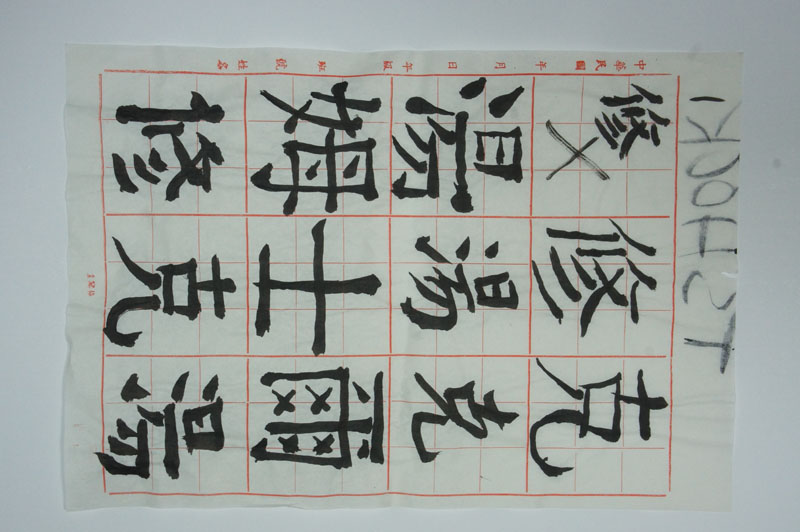 中華民國 年 月 日 年級 組 號 姓名
修修克
湯湯克
姆士爾
修克湯